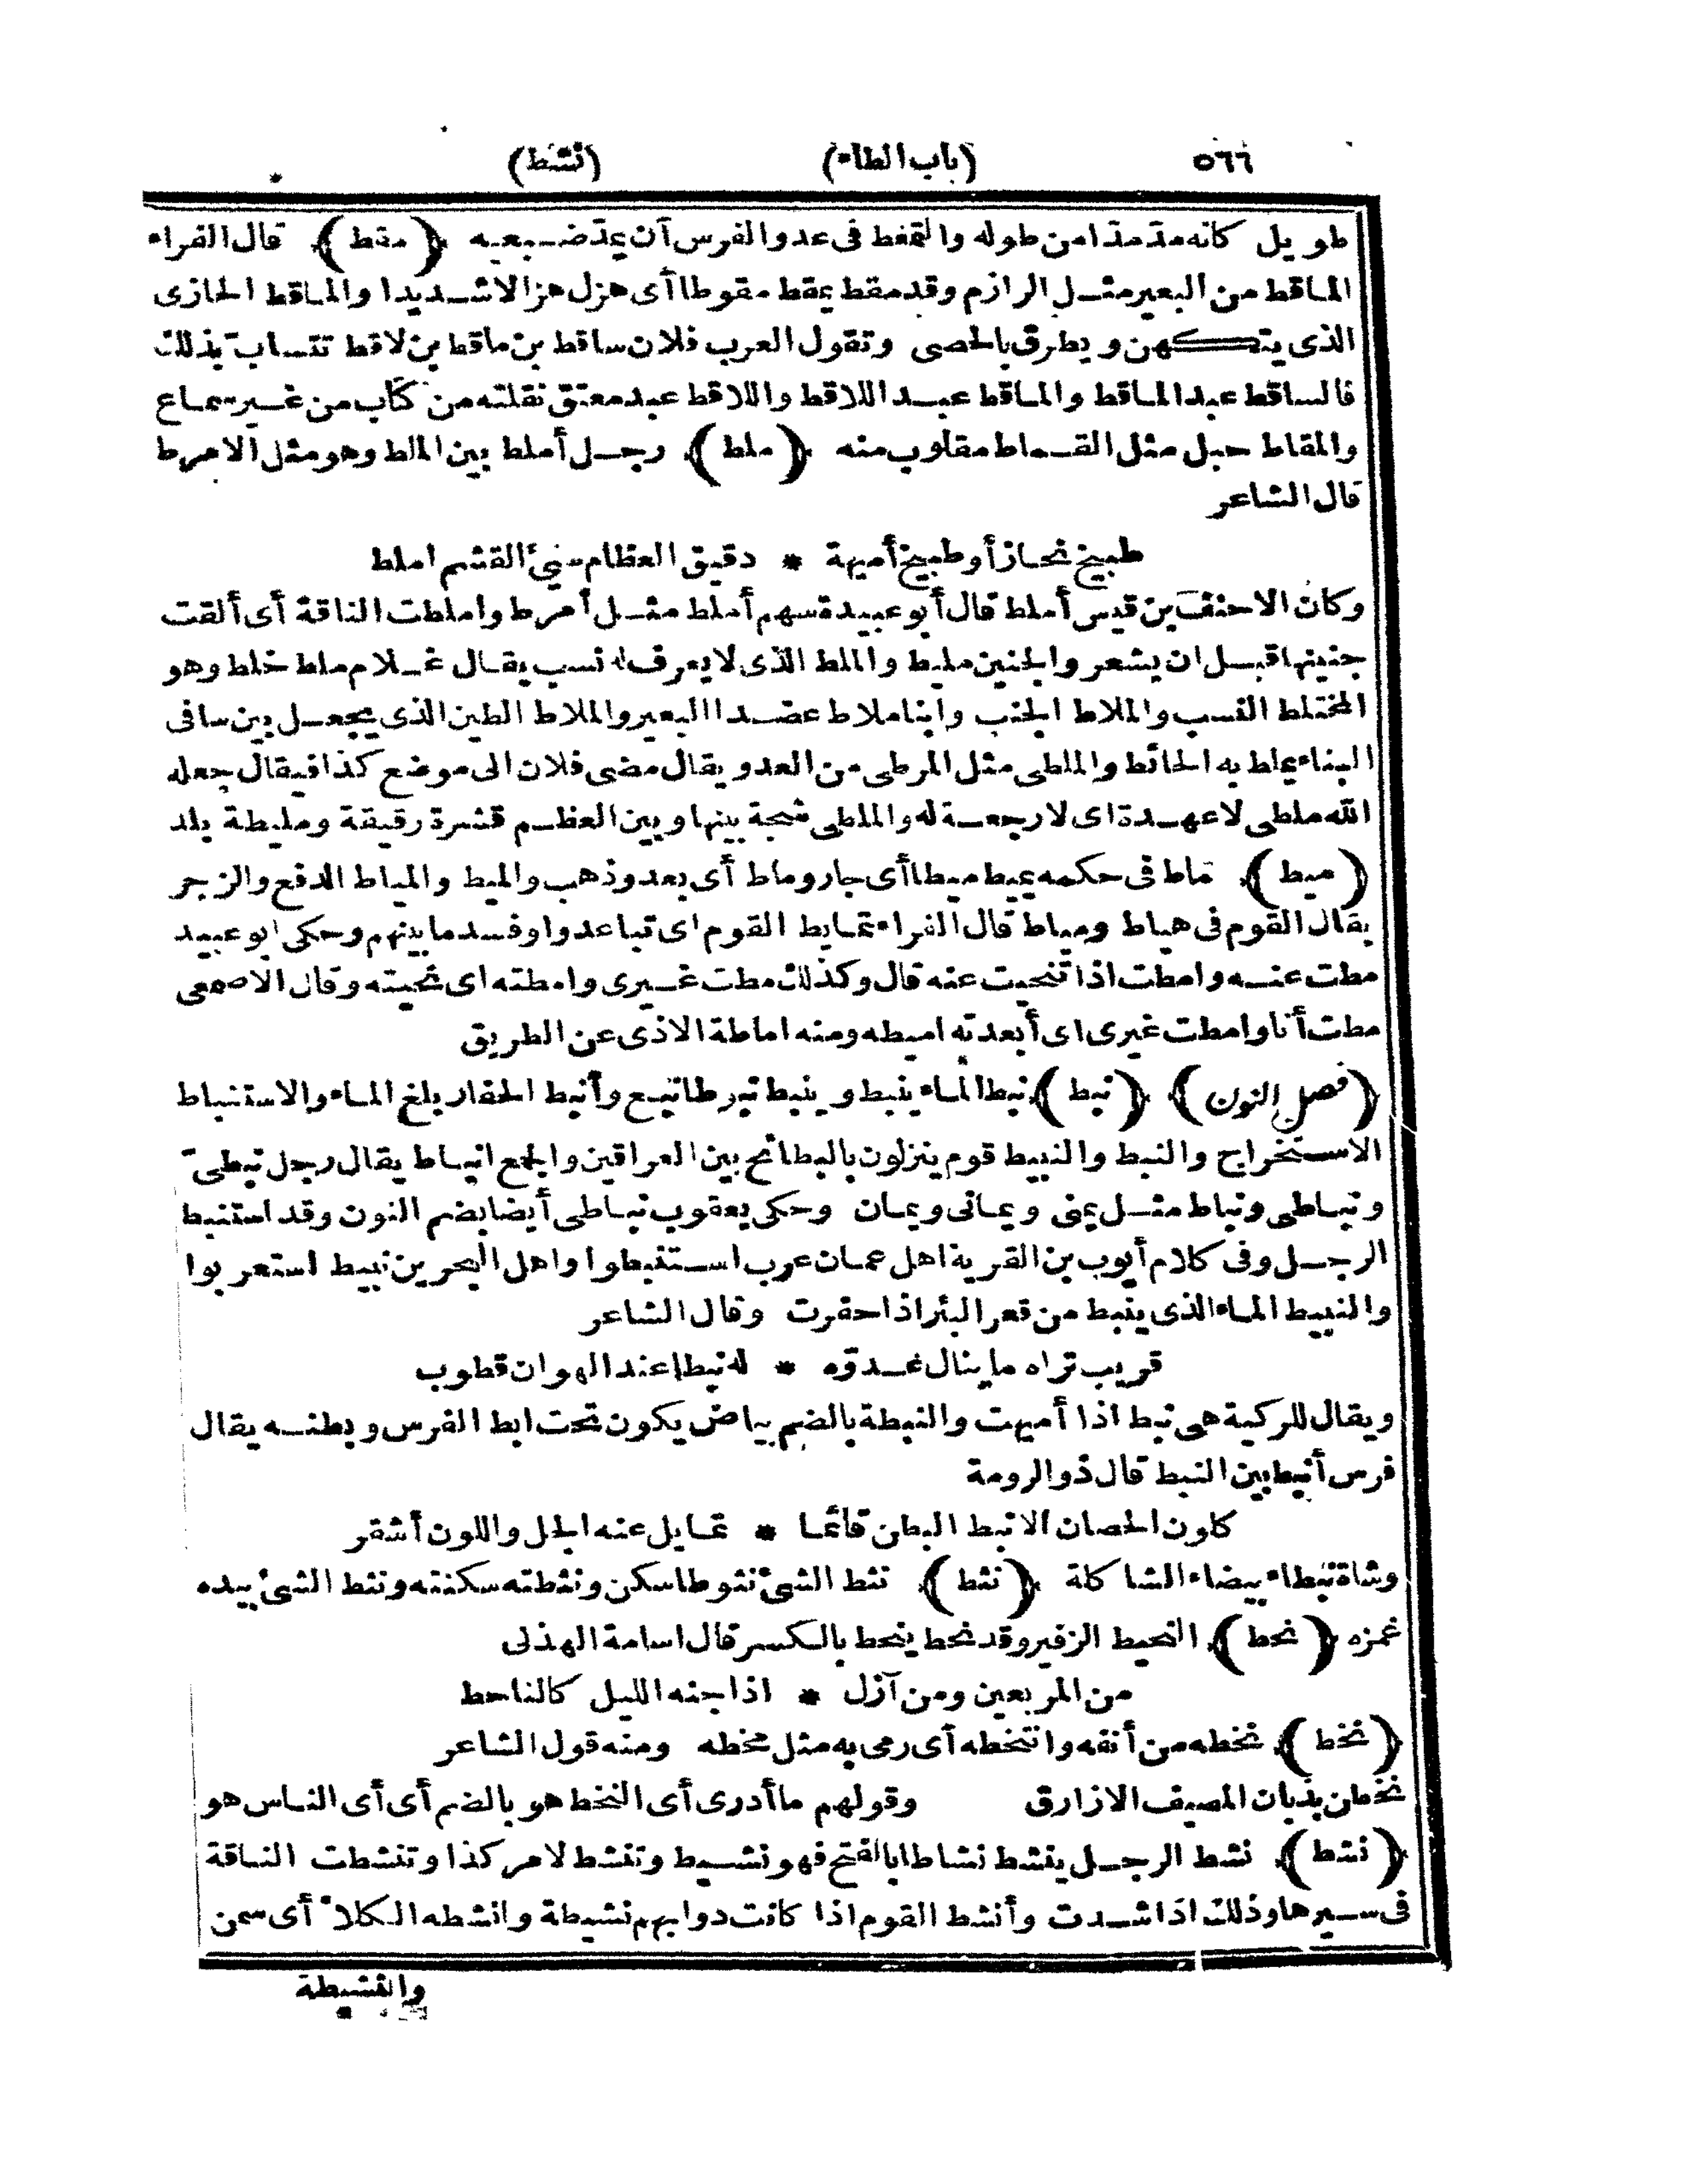 ٥٦٦ (باب الطاء) (نشط)
طويل كأنه مدّ مدّا من طوله والتمغط فى عدو الفرس أن يمدّ ضبعيه ﴿مقط﴾ قال الفراء
الماقط من البعير مثل الرازم وقد مقط يمقط مقوطا أى هزل هزالا شديدا والماقط الحازى
الذى يتكهن ويطرق بالحصى وتقول العرب فلان ساقط بن ماقط بن لاقط تتسابّ بذلك
فالساقط عبد الماقط والماقط عبد اللاقط واللاقط عبد معتق نقلته من كتاب من غير سماع
والمقاط حبل مثل القماط مقلوب منه ﴿ملط﴾ رجل أملط بين الملط وهو مثل الامرط
قال الشاعر
طبيخ نحاز أو طبيخ أميهة * دقيق العظام سيئ القشم املط
وكان الاحنف بن قيس أملط قال أبو عبيدة سهم أملط مثل أمرط واملطت الناقة أى ألقت
جنينها قبل ان يشعر والجنين مليط والملط الذى لا يعرف له نسب يقال غلام ملط خلط وهو
المختلط النسب والملاط الجنب وابنا ملاط عضدا البعير والملاط الطين الذى يجعل بين سافى
البناء يملط به الحائط والملطى مثل المرطى من العدو يقال مضى فلان الى موضع كذا فيقال جعله
الله ملطى لا عهدة اى لا رجعة له والملطى شجة بينها وبين العظم قشرة رقيقة ومليطة بلد
﴿ميط﴾ ماط فى حكمه يميط ميطا أى جار وماط أى بعد وذهب والميط والمياط الدفع والزجر
يقال القوم فى هياط ومياط قال الفراء تمايط القوم اى تباعدوا وفسد ما بينهم وحكى ابو عبيد
مطت عنه وامطت اذا تنحيت عنه قال وكذلك مطت غيرى وامطته اى نحيته وقال الاصمعى
مطت أنا وامطت غيرى اى أبعدته اميطه ومنه اماطة الاذى عن الطريق
﴿فصل النون﴾ ﴿نبط﴾ نبط الماء ينبط وينبط نبوطا نبع وأنبط الحفار بلغ الماء والاستنباط
الاستخراج والنبط والنبيط قوم ينزلون بالبطائح بين العراقين والجمع انباط يقال رجل نبطىّ
ونباطى ونباط مثل يمنى ويمانى ويمان وحكى يعقوب نباطى أيضا بضم النون وقد استنبط
الرجل وفى كلام أيوب بن القرية اهل عمان عرب استنبطوا واهل البحرين نبيط استعربوا
والنبيط الماء الذى ينبط من قعر البئر اذا حفرت وقال الشاعر
قريب تراه ما ينال عدوّه * له نبطا عند الهوان قطوب
ويقال للركية هى نبط اذا أميهت والنبطة بالضم بياض يكون تحت ابط الفرس وبطنه يقال
فرس أنبط بين النبط قال ذو الرومة
كلون الحصان الانبط البطن قائما * تمايل عنه الجل واللون أشقر
وشاة نبطاء بيضاء الشاكلة ﴿نثط﴾ نثط الشئ نثوطا سكن ونثطته سكنته ونثط الشئ بيده
غمزه ﴿نحط﴾ النحيط الزفير وقد نحط ينحط بالكسر قال اسامة الهذلى
من المربعين ومن آزل * اذا جنه الليل كالناحط
﴿نخط﴾ نخطه من أنفه وانتخطه أى رمى به مثل مخطه ومنه قول الشاعر
نخطن بذبان المصيف الازارق وقولهم ما أدرى أى النخط هو بالضم أى أى الناس هو
﴿نشط﴾ نشط الرجل ينشط نشاطا بالفتح فهو نشيط وتنشط لامر كذا وتنشطت الناقة
فى سيرها وذلك اذا شدت وأنشط القوم اذا كانت دوابهم نشيطة وانشطه الكلأ أى سمن
والنشيطة